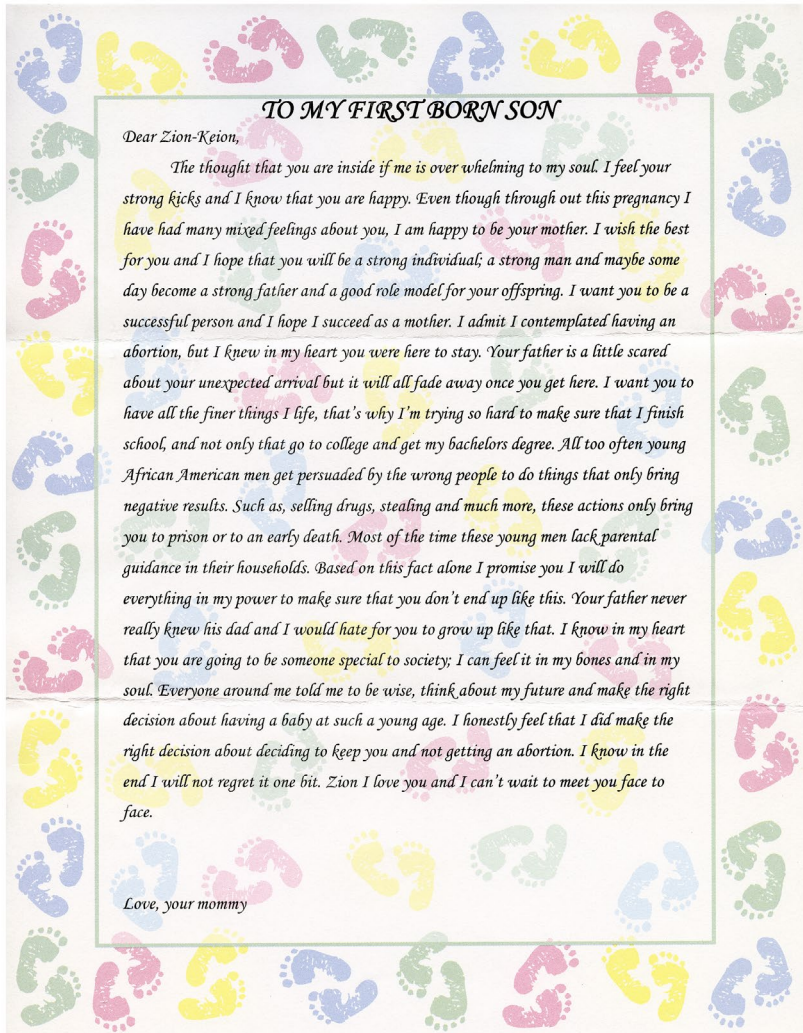 TO MY FIRST BORN SON
Dear Zion-Keion,
The thought that you are inside if me is over whelming to my soul. I feel your
strong kicks and I know that you are happy. Even though through out this pregnancy I
have had many mixed feelings about you, I am happy to be your mother. I wish the best
for you and I hope that you will be a strong individual; a strong man and maybe some
day become a strong father and a good role model for your offspring. I want you to be a
successful person and I hope I succeed as a mother. I admit I contemplated having an
abortion, but I knew in my heart you were here to stay. Your father is a little scared
about your unexpected arrival but it will all fade away once you get here. I want you to
have all the finer things I life, that's why I'm trying so hard to make sure that I finish
school, and not only that go to college and get my bachelors degree. All too often young
African American men get persuaded by the wrong people to do things that only bring
negative results. Such as, selling drugs, stealing and much more, these actions only bring
you to prison or to an early death. Most of the time these young men lack parental
guidance in their households. Based on this fact alone I promise you I will do
everything in my power to make sure that you don't end up like this. Your father never
really knew his dad and I would hate for you to grow up like that. I know in my heart
that you are going to be someone special to society; I can feel it in my bones and in my
soul. Everyone around me told me to be wise, think about my future and make the right
decision about having a baby at such a young age. I honestly feel that I did make the
right decision about deciding to keep you and not getting an abortion. I know in the
end I will not regret it one bit. Zion I love you and I can't wait to meet you face to
face.
Love, your mommy